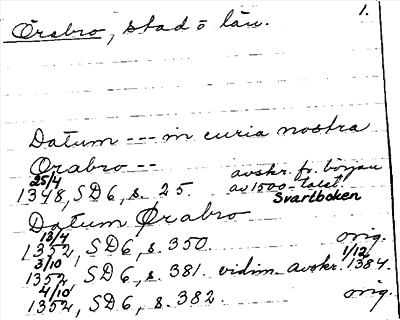 1.
Örebro, stad o län.
Datum --- in curia nostra
Orabro --
avskr. fr. början
25/4
av 1500-talet,
1348, SD6, s. 25.
Svartboken
Datum Ørabro
13/4
1352, SD6, s. 350. orig.
3/10 1/12
1352 SD6, s. 381. vidim. avskr. 1384.
4/10
1352, SD6, s. 382. orig.